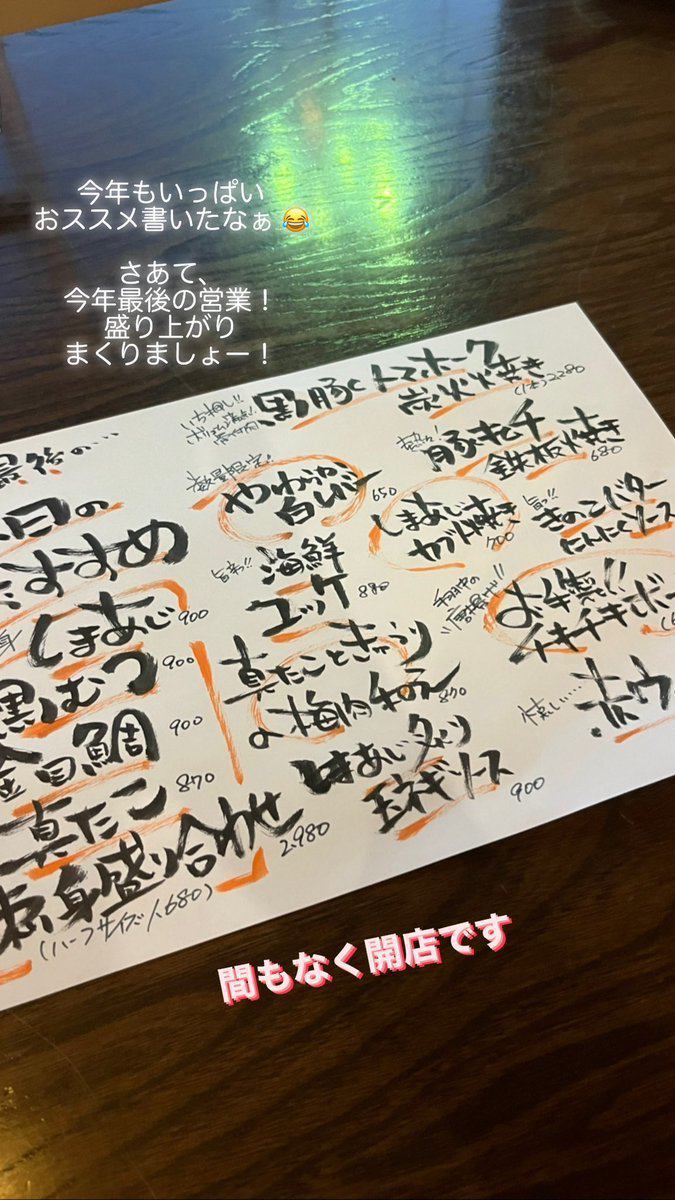 今年もいっぱい
おススメ書いたなぁ😂
さあて、
今年最後の営業！
盛り上がり
まくりましょー！
最後の…
本日の
おすすめ
しまあじ 900
黒むつ 900
金目鯛 900
真たこ 870
刺身盛り合わせ 2,980
(ハーフサイズ 1,680)
いち押し!!
黒豚トマホーク
炭火焼き
(1本) 2280
数量限定!
やわらか
白レバー 650
旨辛!!
海鮮
ユッケ 880
真たこときゅうり
の梅肉和え 870
しまあじタタキ
玉ネギソース 900
豚キムチ
鉄板焼き 680
しまあじ
カブト焼き 700
旨っ!!
きのこバター
にんにくソース
手羽中の
唐揚げ!!
お手製!!
チキチキボー
懐しい…
ホウ
間もなく開店です